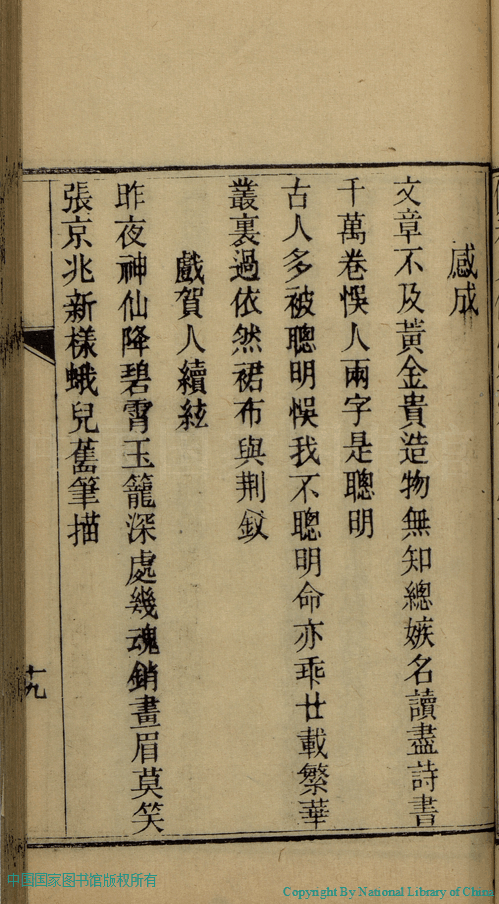 感成
文章不及黃金貴造物無知總嫉名讀盡詩書
千萬卷悞人兩字是聰明
古人多被聰明悞我不聰明命亦乖廿載繁華
叢裏過依然裙布與荆釵
戲賀人續絃
昨夜神仙降碧霄玉籠深處幾魂銷畫眉莫笑
張京兆新樣蛾兒舊筆描
十九
中国国家图书馆版权所有
Copyright By National Library of China